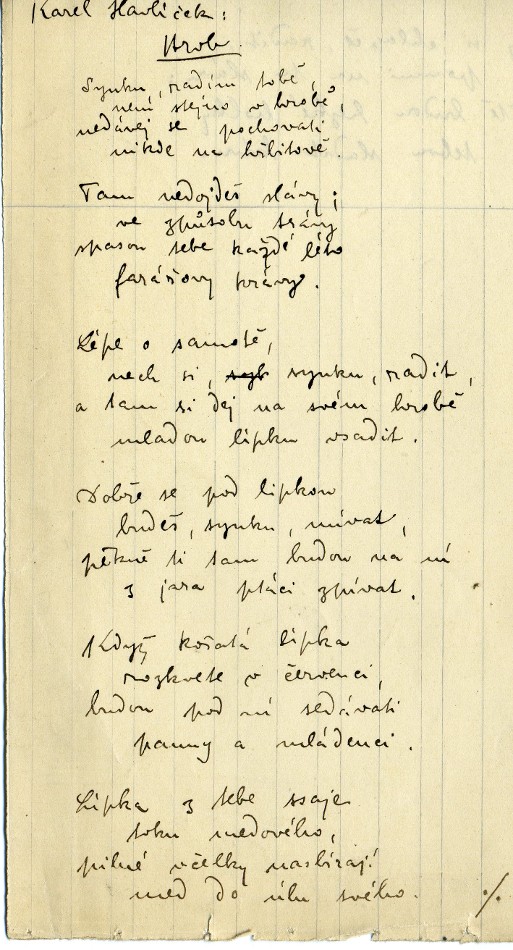 Karel Havlíček:
Hrob.
Synku, radím tobě,
není stejno v hrobě,
nedávej se pochovati
nikde na hřbitově.
Tam nedojdeš slávy;
ve způsobu trávy
spasou tebe každé léto
farářovy krávy.
Lépe o samotě,
nech si, synku, radit,
a tam si dej na svém hrobě
mladou lípku vsadit.
Dobře se pod lipkou
budeš, synku, mívat,
pěkně ti tam budou na ní
z jara ptáci zpívat.
Když košatá lipka
rozkvete v červenci,
budou pod ní sedávati
panny a mládenci.
Lipka z tebe ssaje
toku medového,
pilné včelky nasbírají
med do úlu svého.
%